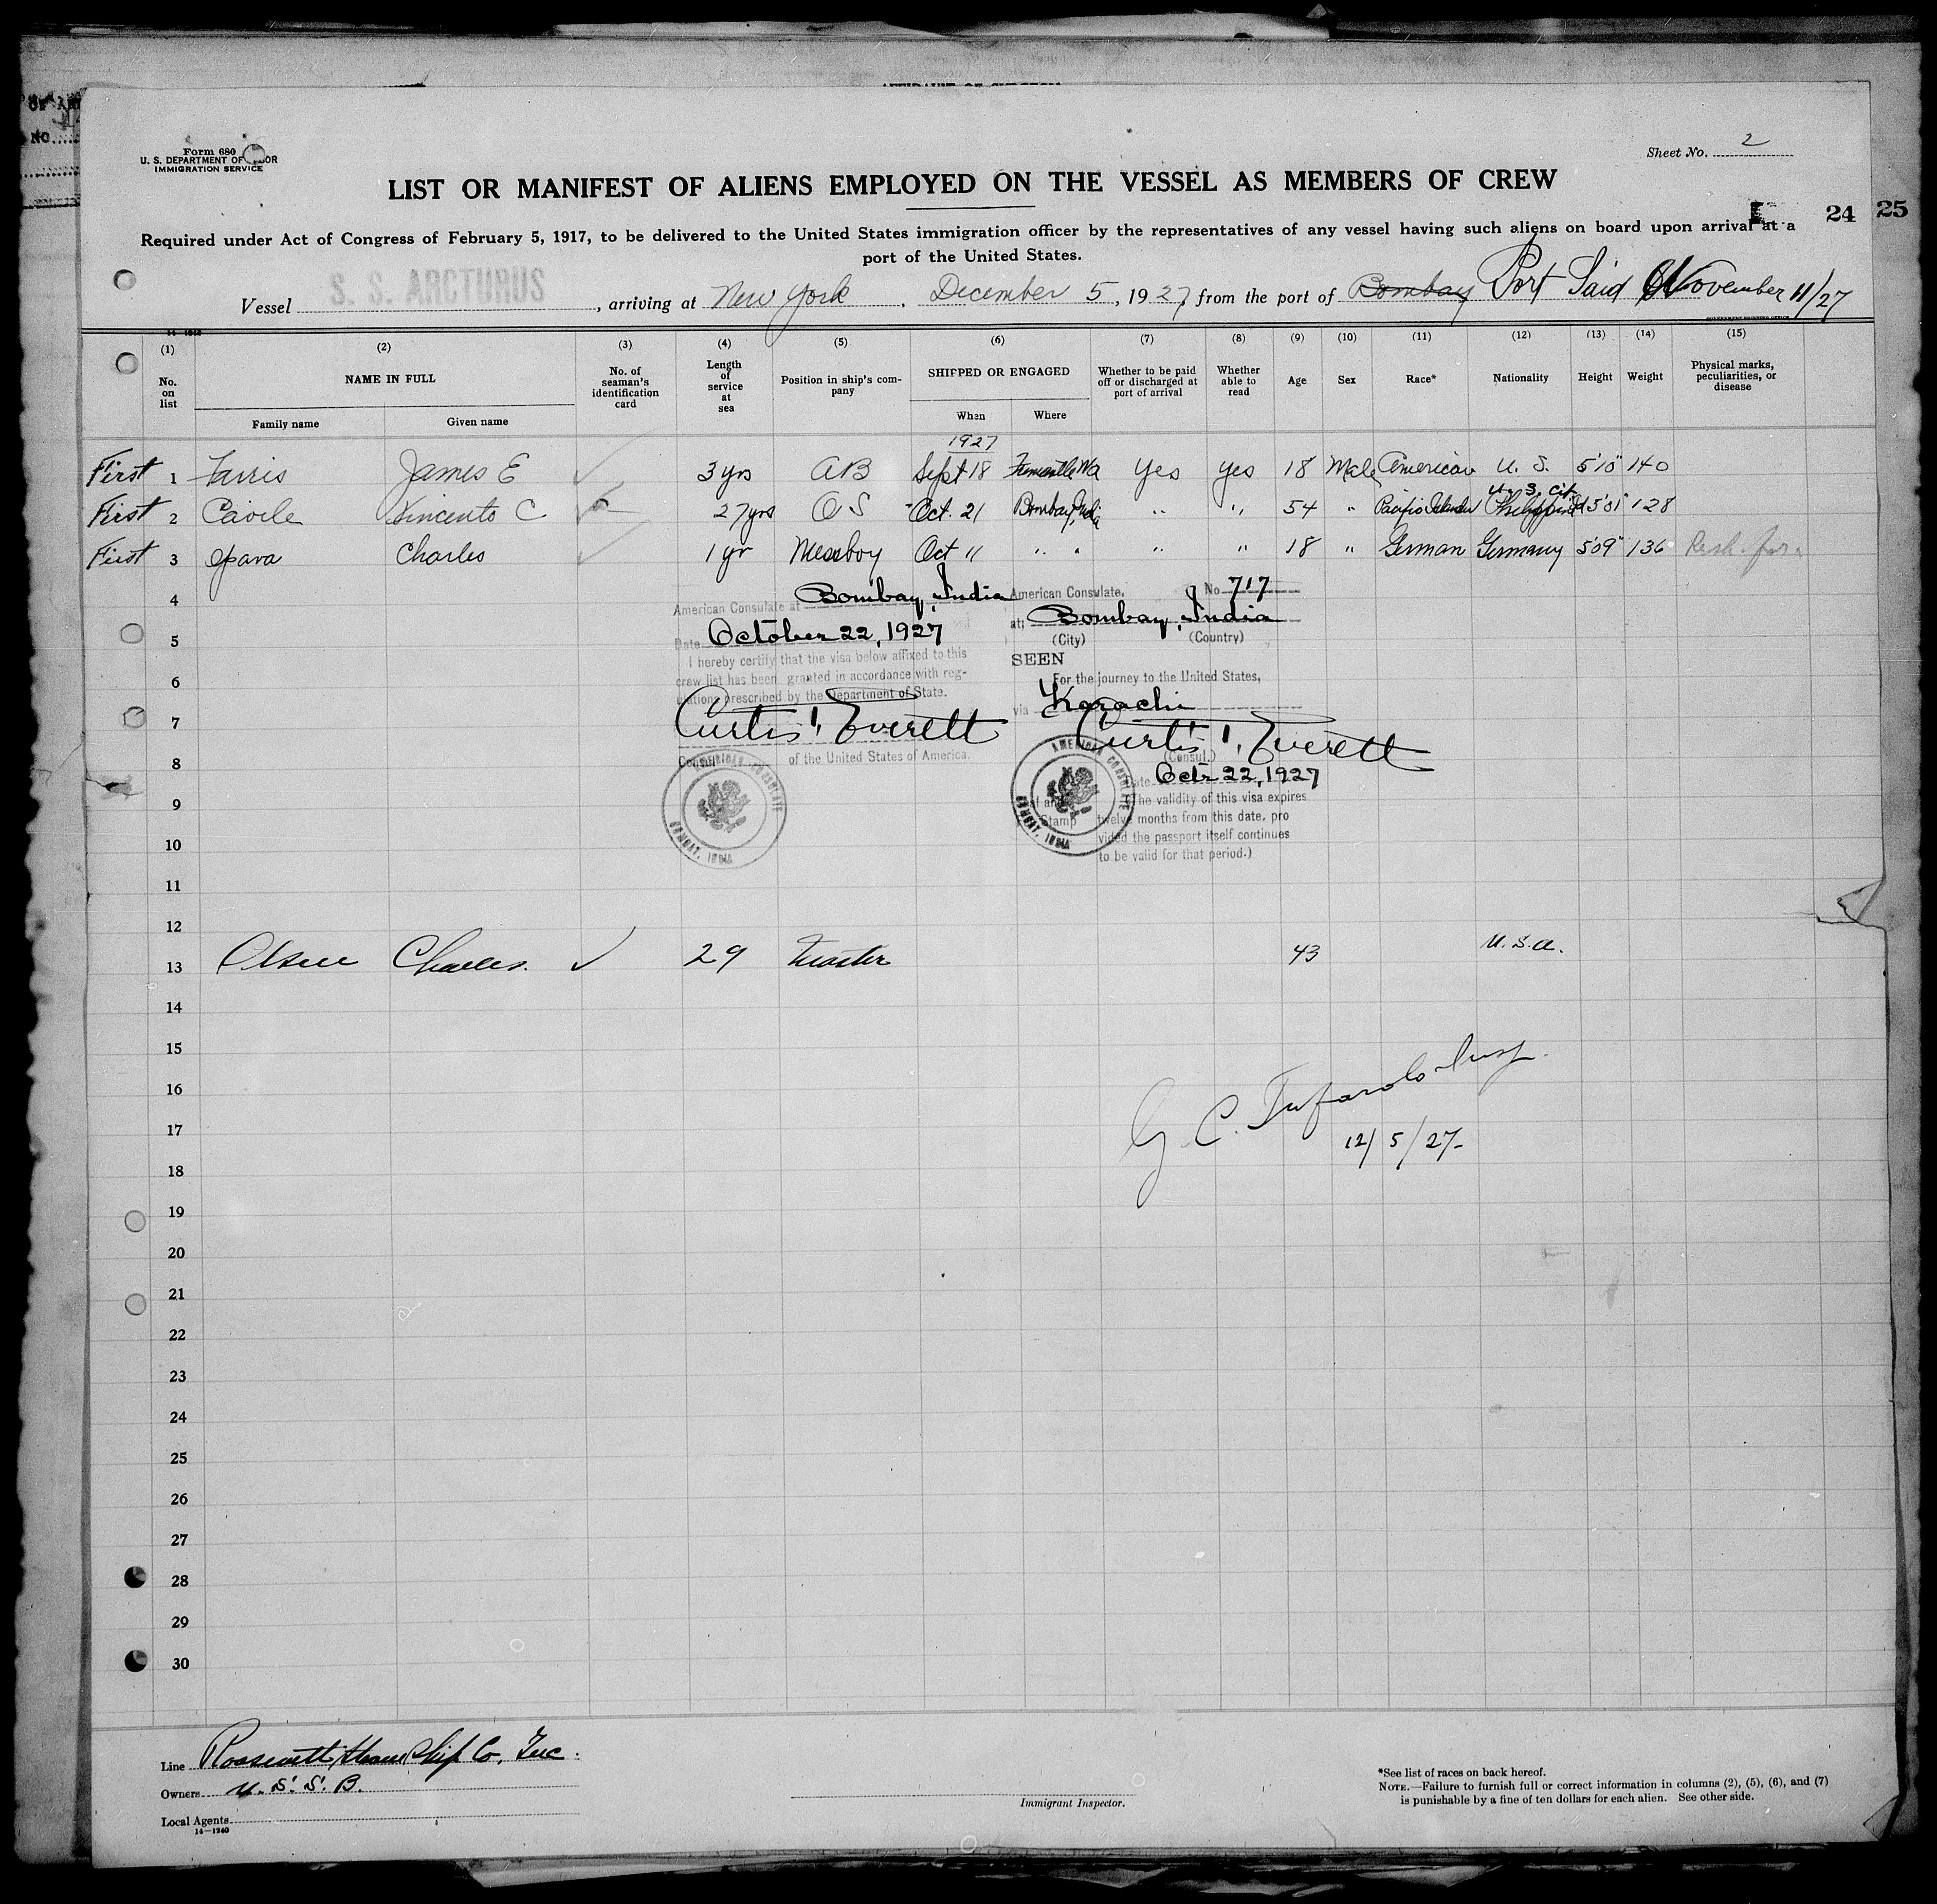 OF
NO.
Form 680
U. S. DEPARTMENT OF LABOR
IMMIGRATION SERVICE
Sheet No. 2
LIST OR MANIFEST OF ALIENS EMPLOYED ON THE VESSEL AS MEMBERS OF CREW
24 25
Required under Act of Congress of February 5, 1917, to be delivered to the United States immigration officer by the representatives of any vessel having such aliens on board upon arrival at a
port of the United States.
Vessel S. S. ARCTURUS, arriving at New York, December 5, 1927, from the port of Bombay Port Said November 11/27
(1) (2) (3) (4) (5) (6) (7) (8) (9) (10) (11) (12) (13) (14) (15)
No. on list NAME IN FULL Family name Given name No. of seaman's identification card Length of service at sea Position in ship's company SHIPPED OR ENGAGED When Where Whether to be paid off or discharged at port of arrival Whether able to read Age Sex Race* Nationality Height Weight Physical marks, peculiarities, or disease
1927
First 1 Farris James E 3 yrs AB Sept 18 Fremantle WA Yes Yes 18 Male American U. S. 5'10" 140
U. S. cit.
First 2 Cavile Vincento C 27 yrs OS Oct. 21 Bombay, India " " 54 " Pacific Islander 5'01" 128
First 3 Charles 1 yr Messboy Oct 11 " " " " 18 " German Germany 5'09" 136
4
American Consulate at Bombay, India
Date October 22, 1927
I hereby certify that the visa below affixed to this
crew list has been granted in accordance with reg-
ulations prescribed by the Department of State.
Curtis T. Everett
Consul of the United States of America.
AMERICAN CONSULATE
BOMBAY, INDIA
American Consulate, No 717
at; Bombay, India
(City) (Country)
SEEN
For the journey to the United States,
via Karachi
Curtis T. Everett
(Consul.)
Date Octr 22, 1927
(The validity of this visa expires
twelve months from this date, pro
vided the passport itself continues
to be valid for that period.)
AMERICAN CONSULATE
BOMBAY, INDIA
5
6
7
8
9
10
11
12
13 Olsen Charles. 29 Master 43 U. S. A.
14
15
16
G. C. Insp.
17
12/5/27
18
19
20
21
22
23
24
25
26
27
28
29
30
Line Roosevelt Steam Ship Co, Inc.
Owners U. S. S. B.
Local Agents
14—1240
Immigrant Inspector.
*See list of races on back hereof.
NOTE.—Failure to furnish full or correct information in columns (2), (5), (6), and (7)
is punishable by a fine of ten dollars for each alien. See other side.